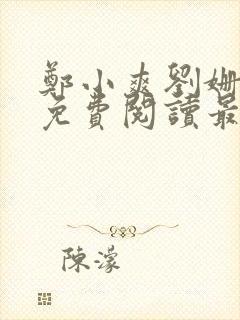 鄭小爽劉姍
免費閱讀最
陳濛